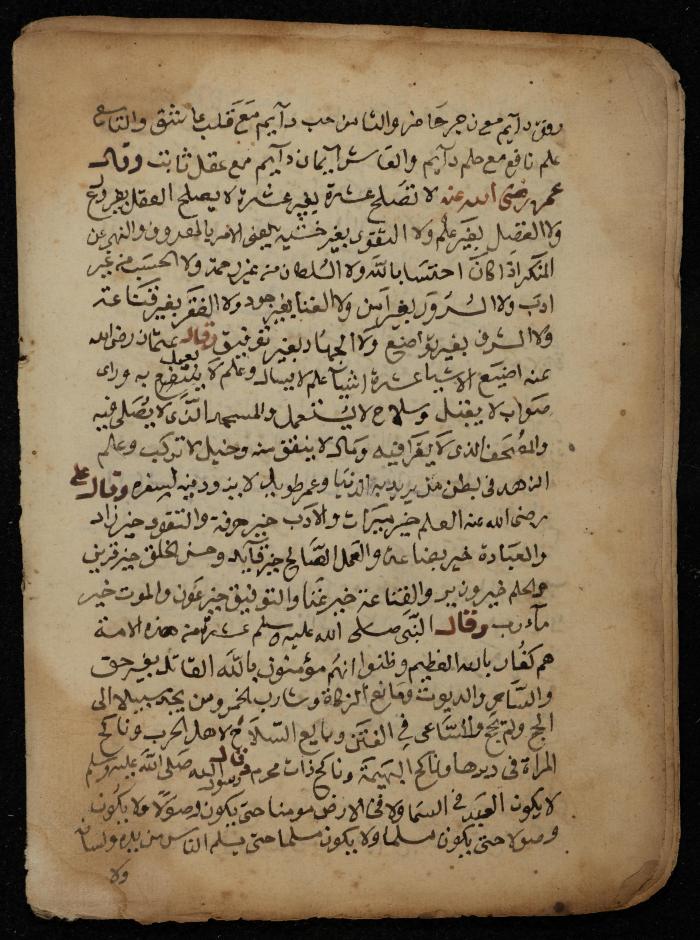 دايم مع زجر حاضر والثامن حب دايم مع قلب عاشق والتاسع
علم نافع مع حلم دايم والعاشر ايمان دايم مع عقل ثابت وقال
عمر رضى الله عنه لا تصلح عشرة بغير عشرة لا يصلح العقل بغير ورع
ولا الفضل بغير علم ولا التقوى بغير خشية يعنى الامر بالمعروف والنهى عن
المنكر اذا كان احتسابا لله ولا السلطان من غير رحمة ولا الحسب من غير
ادب ولا السرور بغير امن ولا الغنا بغير جود ولا الفقر بغير قناعة
ولا الشرف بغير تواضع ولا الجهاد بغير توفيق وقال عثمان رضى الله
عنه اضيع الاشيا عشرة اشيآ علم لا يسال وعلم لا يعمل به وراى
صواب لا يقبل وسلاح لا يستعمل والمسجد الذى لا يصلى فيه
والمصحف الذى لا يقرا فيه ومال لا ينفق منه وخيل لا تركب وعلم
الزهد فى بطن من يريد به الدنيا وعمر طويل لا يزود فيه لسفره وقال على
رضى الله عنه العلم خير ميراث والادب خير حرفة والتقوى خير زاد
والعبادة خير بضاعة والعمل الصالح خير قآيد وحسن الخلق خير قرين
والحلم خير وزير والقناعة خير غنا والتوفيق خير عون والموت خير
مآدب وقال النبى صلى الله عليه وسلم عشرة من هذه الامة
هم كفار بالله العظيم وظنوا انهم مؤمنون بالله القاتل بغير حق
والساحر والديوث ومانع الزكاة وشارب الخمر ومن يجد سبيلا الى
الحج ولم يحج والساعى فى الفتن وبايع السلاح لاهل الحرب وناكح
المراة فى دبرها وناكح البهيمة وناكح ذات محرم قال رسول الله صلى الله عليه وسلم
لا يكون العبد فى السما ولا فى الارض مومنا حتى يكون وصولا ولا يكون
وصولا حتى يكون مسلما ولا يكون مسلما حتى يسلم الناس من يده ولسانه
ولا